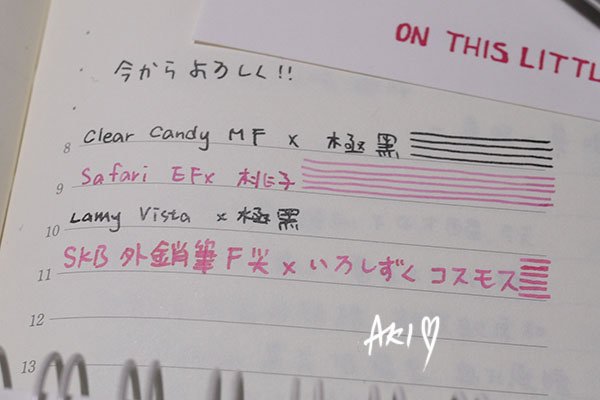 ON THIS LITTL
今からよろしく!!
8 Clear Candy MF x 極黒
9 Safari EFx 桃子
10 Lamy Vista x 極黒
11 SKB 外銷筆 F尖 x いろしずく コスモス
12
13
AKI♡